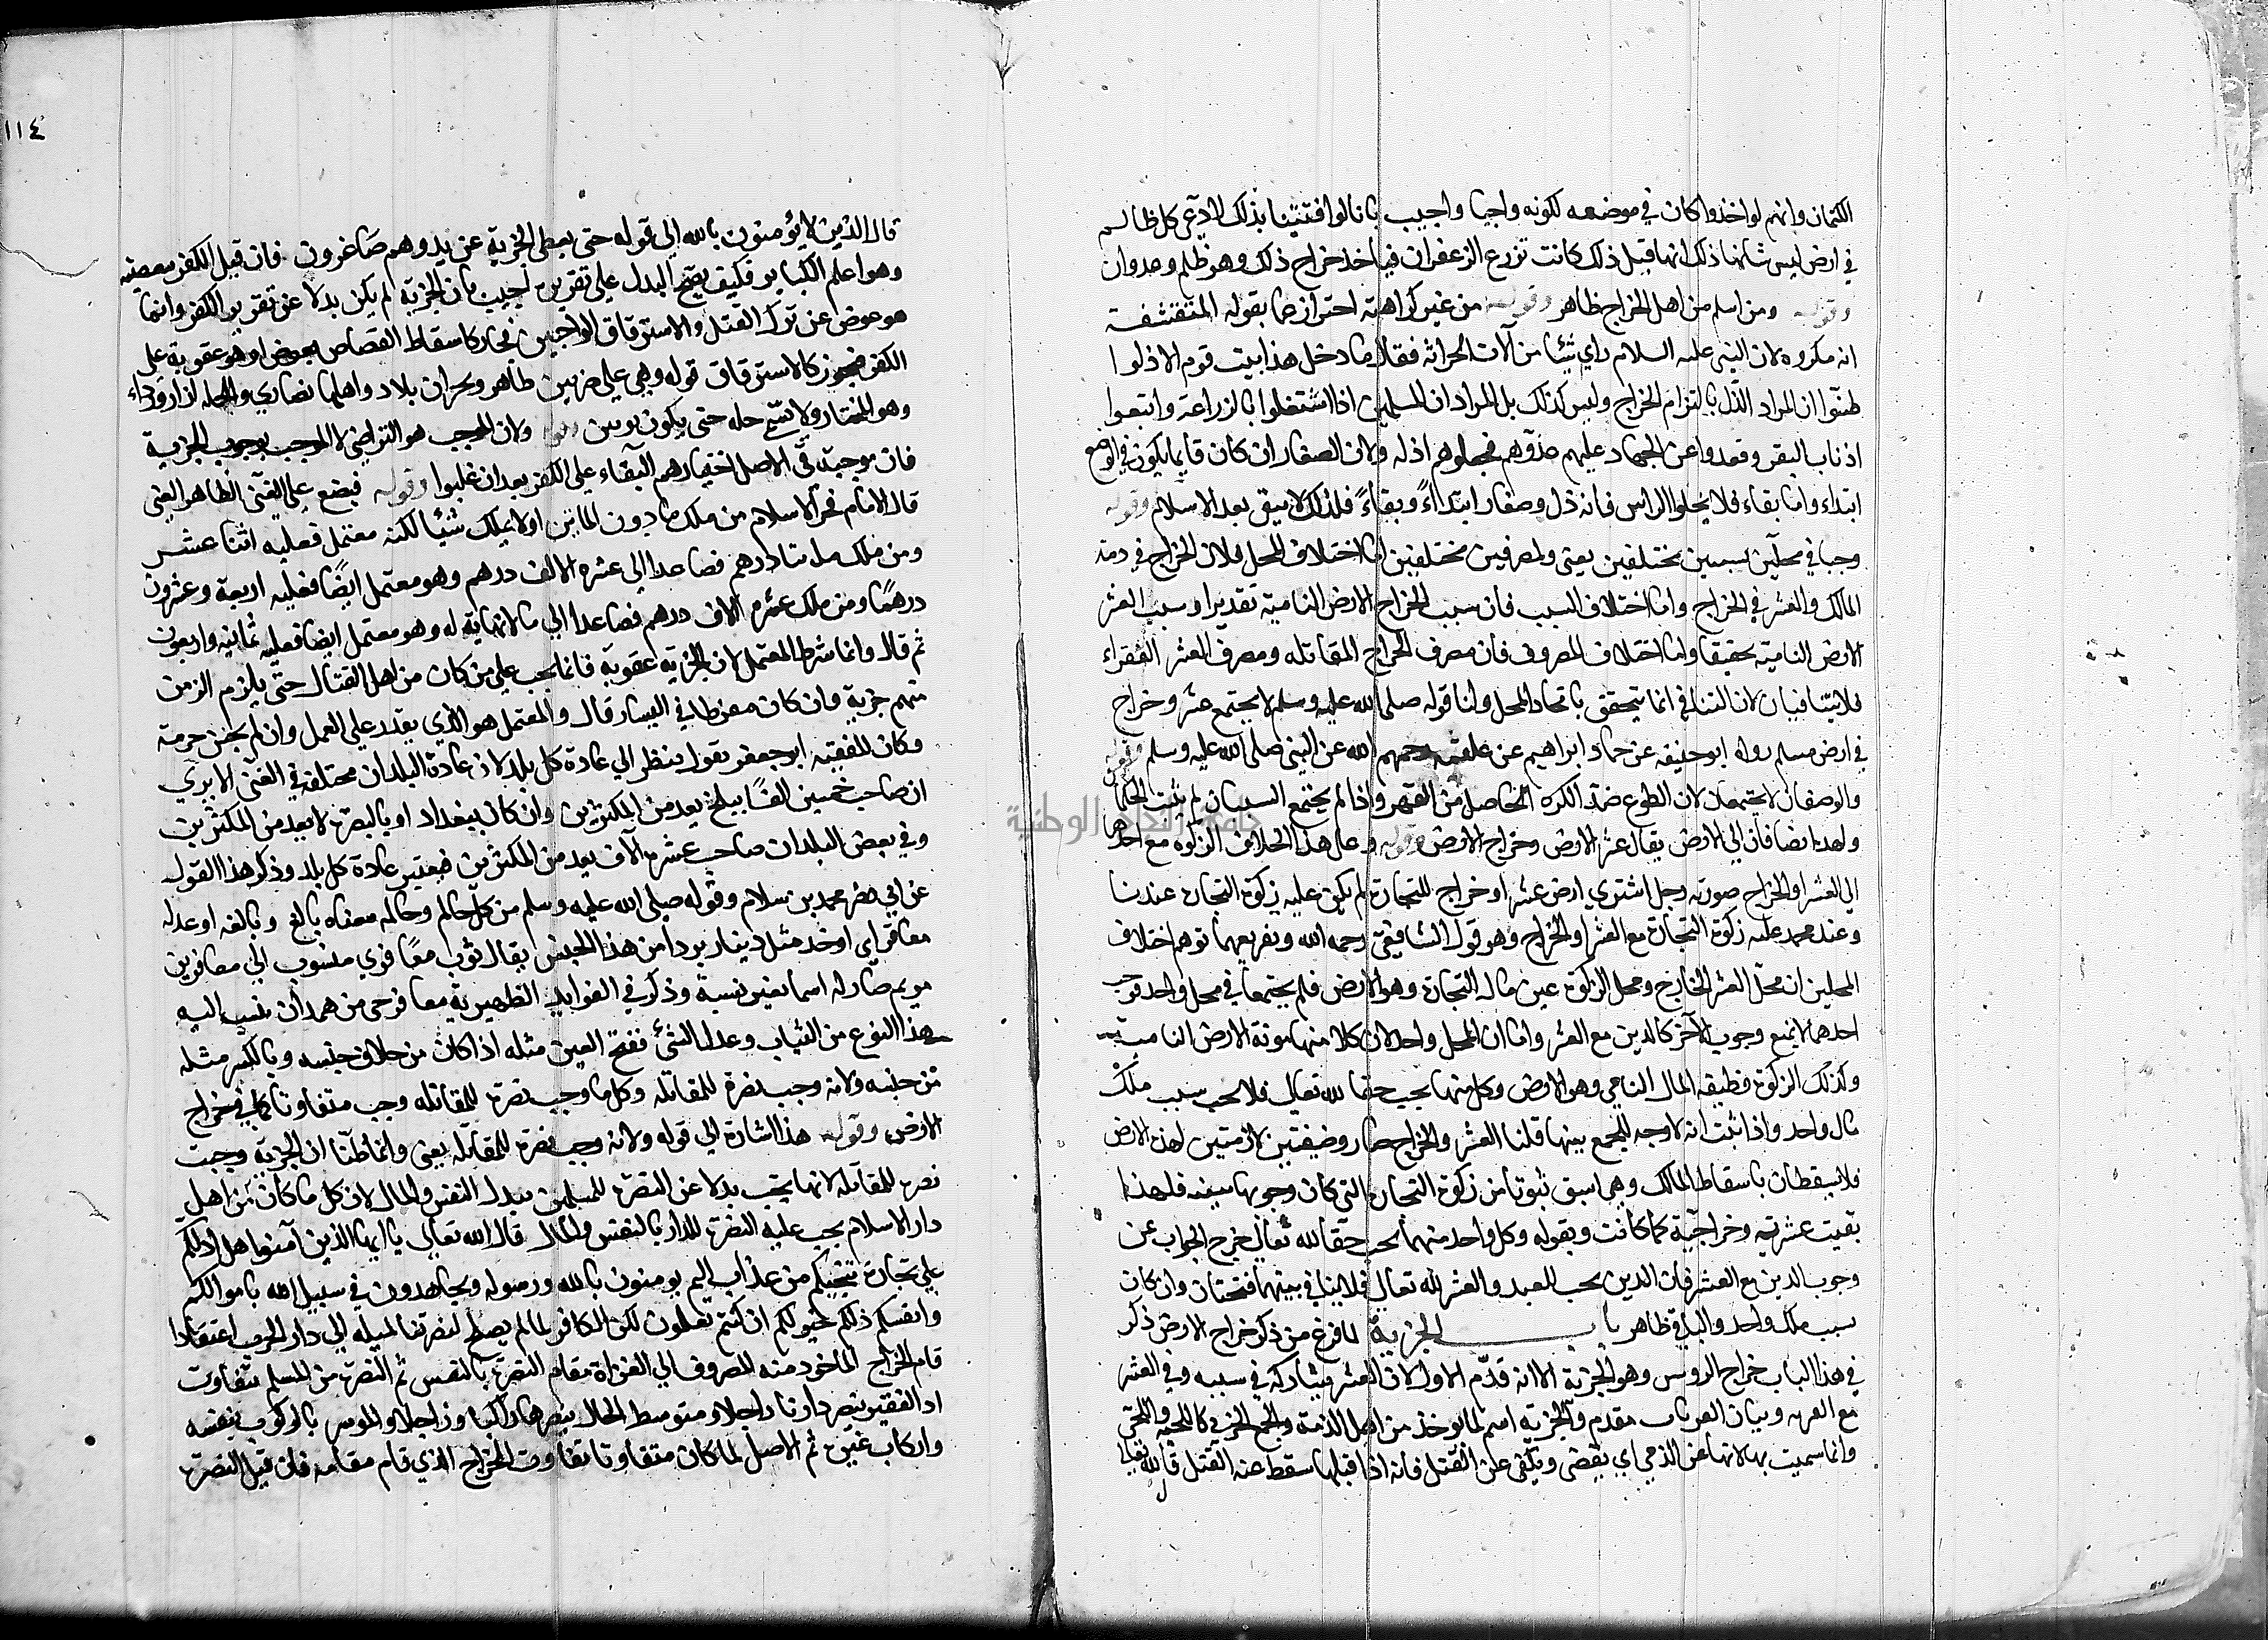 الكتمان وانهم لو اخذوا كان في موضعه لكونه واجبا واجيب بانا لو افتينا بذلك لادعى كل ظالم
في ارض ليس شانها ذلك انها قبل ذلك كانت تزرع الزعفران فياخذ خراج ذلك وهو ظلم وعدوان
وقوله ومن اسلم من اهل الخراج ظاهر وقوله من غير كراهة احتراز عما يقوله المتقشفة
انه مكروه لان النبي عليه السلام راي شيئا من آلات الحراثة فقال ما دخل هذا بيت قوم الا ذلوا
ظنوا ان المراد الذل بالتزام الخراج وليس كذلك بل المراد ان المسلمين اذا اشتغلوا بالزراعة واتبعوا
اذناب البقر وقعدوا عن الجهاد عليهم عدوهم فجعلوهم اذلة ولان الصغار ان كان فانما يكون في الوضع
ابتداء واما بقاء فلا بخلاف الراس فانه ذل وصغار ابتداءً وبقاءً فلذلك لا يبقى بعد الاسلام وقوله
وجبا في محلين بسببين مختلفين يعني ولمصرفين مختلفين اما اختلاف المحل فلان الخراج في ذمة
المالك والعشر في الخارج واما اختلاف السبب فان سبب الخراج الارض النامية تقديرا وسبب العشر
الارض النامية تحقيقا واما اختلاف المصروف فان مصرف الخراج المقاتلة ومصرف العشر الفقراء
فلا يتنافيان لان التنافي انما يتحقق باتحاد المحل ولنا قوله صلى الله عليه وسلم لا يجتمع عشر وخراج
في ارض مسلم رواه ابو حنيفة عن حماد ابراهيم عن علقمة رحمهم الله عن النبي صلى الله عليه وسلم وقوله
والوصفان لا يجتمعان لان الطوع ضد الكره الحاصل من القهر واذا لم يجتمع السببان لم يثبت الحكمان
ولهذا يضافان الي الارض يقال عشر الارض وخراج الارض وقوله وعلى هذا الخلاف الزكوة مع احدهما
الي العشر او الخراج صورته رجل اشتري ارض عشر او خراج للتجارة لم يكن عليه زكوة التجارة عندنا
وعند محمد عليه زكوة التجارة مع العشر او الخراج وهو قول الشافعي رحمه الله وتفريعهما توهم اختلاف
المحلين ان محل العشر الخارج ومحل الزكوة عين مال التجارة وهو الارض فلم يجتمعا في محل واحد فوجوب
احدهما لا يمنع وجوب الآخر كالدين مع العشر واما ان المحل واحد لان كلا منهما مونة الارض النامية
وكذلك الزكوة وظيفة المال النامي وهو الارض وكل منهما يجب حقا لله تعالى فلا يجب بسبب ملك
مال واحد واذا ثبت انه لا وجه للجمع بينهما قلنا العشر والخراج صار وظيفتين لازمتين لهذه الارض
فلا يسقطان باسقاط المالك وهي اسبق ثبوتا من زكوة التجارة التي كان وجوبها بنيته فلهذا
بقيت عشرية وخراجية كما كانت وبقوله وكل واحد منهما يجب حقا لله تعالى خرج الجواب عن
وجوب الدين مع العشر فان الدين يجب للعبد والعشر لله تعالى فلا تنافي بينهما فتحتان وان كان
بسبب ملك واحد والباقي ظاهر باب الجزية لما فرغ من ذكر خراج الارض ذكر
في هذا الباب خراج الروس وهو الجزية الا انه قدم الاول لان العشر يشاركه في سببه وفي العشر
مع القربة وبيان القربات مقدم والجزية اسم لما يوخذ من اهل الذمة والجمع الجزى كاللحية واللحى
وانما سميت بها لانها عن الذمي اي يقضى ويكفى عن القتل فانه اذا قبلها سقط عنه القتل قال الله تعالى
١١٤
قال الذين لا يؤمنون بالله الي قوله حتى يعطى الجزية عن يد وهم صاغرون فان قيل الكفر معصية
وهو اعلم الكباير فكيف يصح البدل علي تقريره اجيب بان الجزية لم يكن بدلا عن تقرير الكفر وانما
هو عوض عن ترك القتل والاسترقاق الواجبين فجاز كاسقاط القصاص بعوض او هو عقوبة على
الكفر فيجوز كالاسترقاق قوله وهي علي ضربين ظاهر ونجران بلاد واهلها نصاري والحلة ازار ورداء
وهو المختار ولا يسمى حلة حتى يكون ثوبين وقوله ولان الموجب هو التراضي لا الموجب بوجوب الجزية
فان موجبه في الاصل اختيارهم البقاء علي الكفر بعد ان غلبوا وقوله فيضع علي الغني الظاهر الغني
قال الامام فخر الاسلام من ملك ما دون المائتين او لا يملك شيئا لكنه معتمل فعليه اثنا عشر
ومن ملك مائتا درهم فصاعدا الي عشرة الالف درهم وهو معتمل ايضا فعليه اربعة وعشرون
درهما ومن ملك عشرة آلاف درهم فصاعدا الي ما لا نهاية له وهو معتمل ايضا فعليه ثمانية واربعون
ثم قال وانما شرط المعتمل لان الجزية عقوبة فانما يجب علي من كان من اهل القتال حتى يلزم الزمن
منهم جزية وان كان مفرطا في اليسار قال والمعتمل هو الذي يقدر علي العمل وان لم يحسن حرفة
وكان الفقيه ابو جعفر يقول ينظر الي عادة كل بلد لان عادة البلدان مختلفة في الغنى الا يري
ان صاحب خمسين الفا ببلخ يعد من المكثرين وان كان ببغداد او بالبصرة لا يعد من المكثرين
وفي بعض البلدان صاحب عشرة آلاف يعد من المكثرين فيعتبر عادة كل بلد وذكر هذا القول
عن ابي نصر محمد بن سلام وقوله صلى الله عليه وسلم من كل حالم وحالمة معناه بالغ وبالغة او عدله
معافر اي او خذ مثل دينار بردا من هذا الجنس يقال ثوب معافري منسوب الي معافر بن
مر ثم صار له اسما بغير نسبة وذكر في الفوايد الظهيرية معافر حي من همدان ينسب اليه
هذا النوع من الثياب وعدل الشئ بفتح العين مثله اذا كان من خلاف جنسه وبالكسر مثله
من جنسه ولانه وجب نصرة للمقاتلة وكل ما وجب نصرة للمقاتلة وجب متفاوتا كما في خراج
الارض وقوله هذا اشارة الي قوله ولانه وجب نصرة للمقاتلة يعني وانما ظنا ان الجزية وجبت
نصرة للمقاتلة لانها يجب بدلا عن النصرة للمسلمين ببذل النفس والمال لان كل ما كان من اهل
دار الاسلام يجب عليه النصرة للدار بالنفس والمال قال الله تعالى يا ايها الذين آمنوا هل ادلكم
علي تجارة تنجيكم من عذاب اليم يومنون بالله ورسوله ويجاهدون في سبيل الله باموالكم
وانفسكم ذلكم خير لكم ان كنتم تعلمون لكن الكافر لما لم يصلح لنصرتنا لميله الي دار الحرب اعتقادا
قام الخراج الماخوذ منه المصروف الي الغزاة مقام النصرة بالنفس ثم النصرة من المسلم تتفاوت
اذ الفقير ينصر دارنا راجلا ومتوسط الحال ينصرها راكبا وراجلا والموسر بالركوب بنفسه
واركاب غيره ثم الاصل لما كان متفاوتا تفاوت الخراج الذي قام مقامه فان قيل النصرة
جامعة النجاح الوطنية